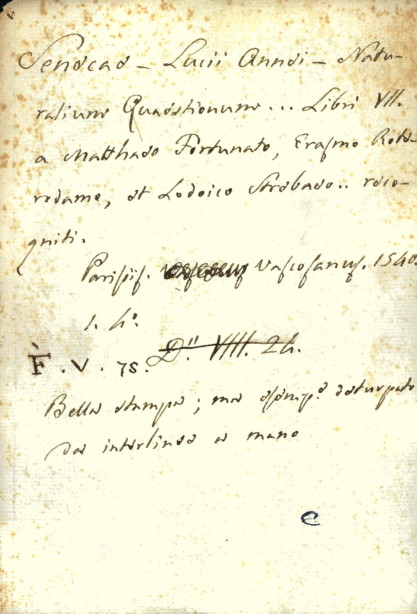 Senecae – Lucii Annei – Natu-
ralium Quaestionum... Libri VII.
a Matthaeo Fortunato, Erasmo Rote-
rodamo, et Lodoico Strebaeo.. reco-
gniti.
Parisiis. Vascosanus. 1540.
1. 4º.
F. V. 75. D.. VIII. 24.
Bella stampa; ma esemp.e deturpato
da interlinee a mano
e